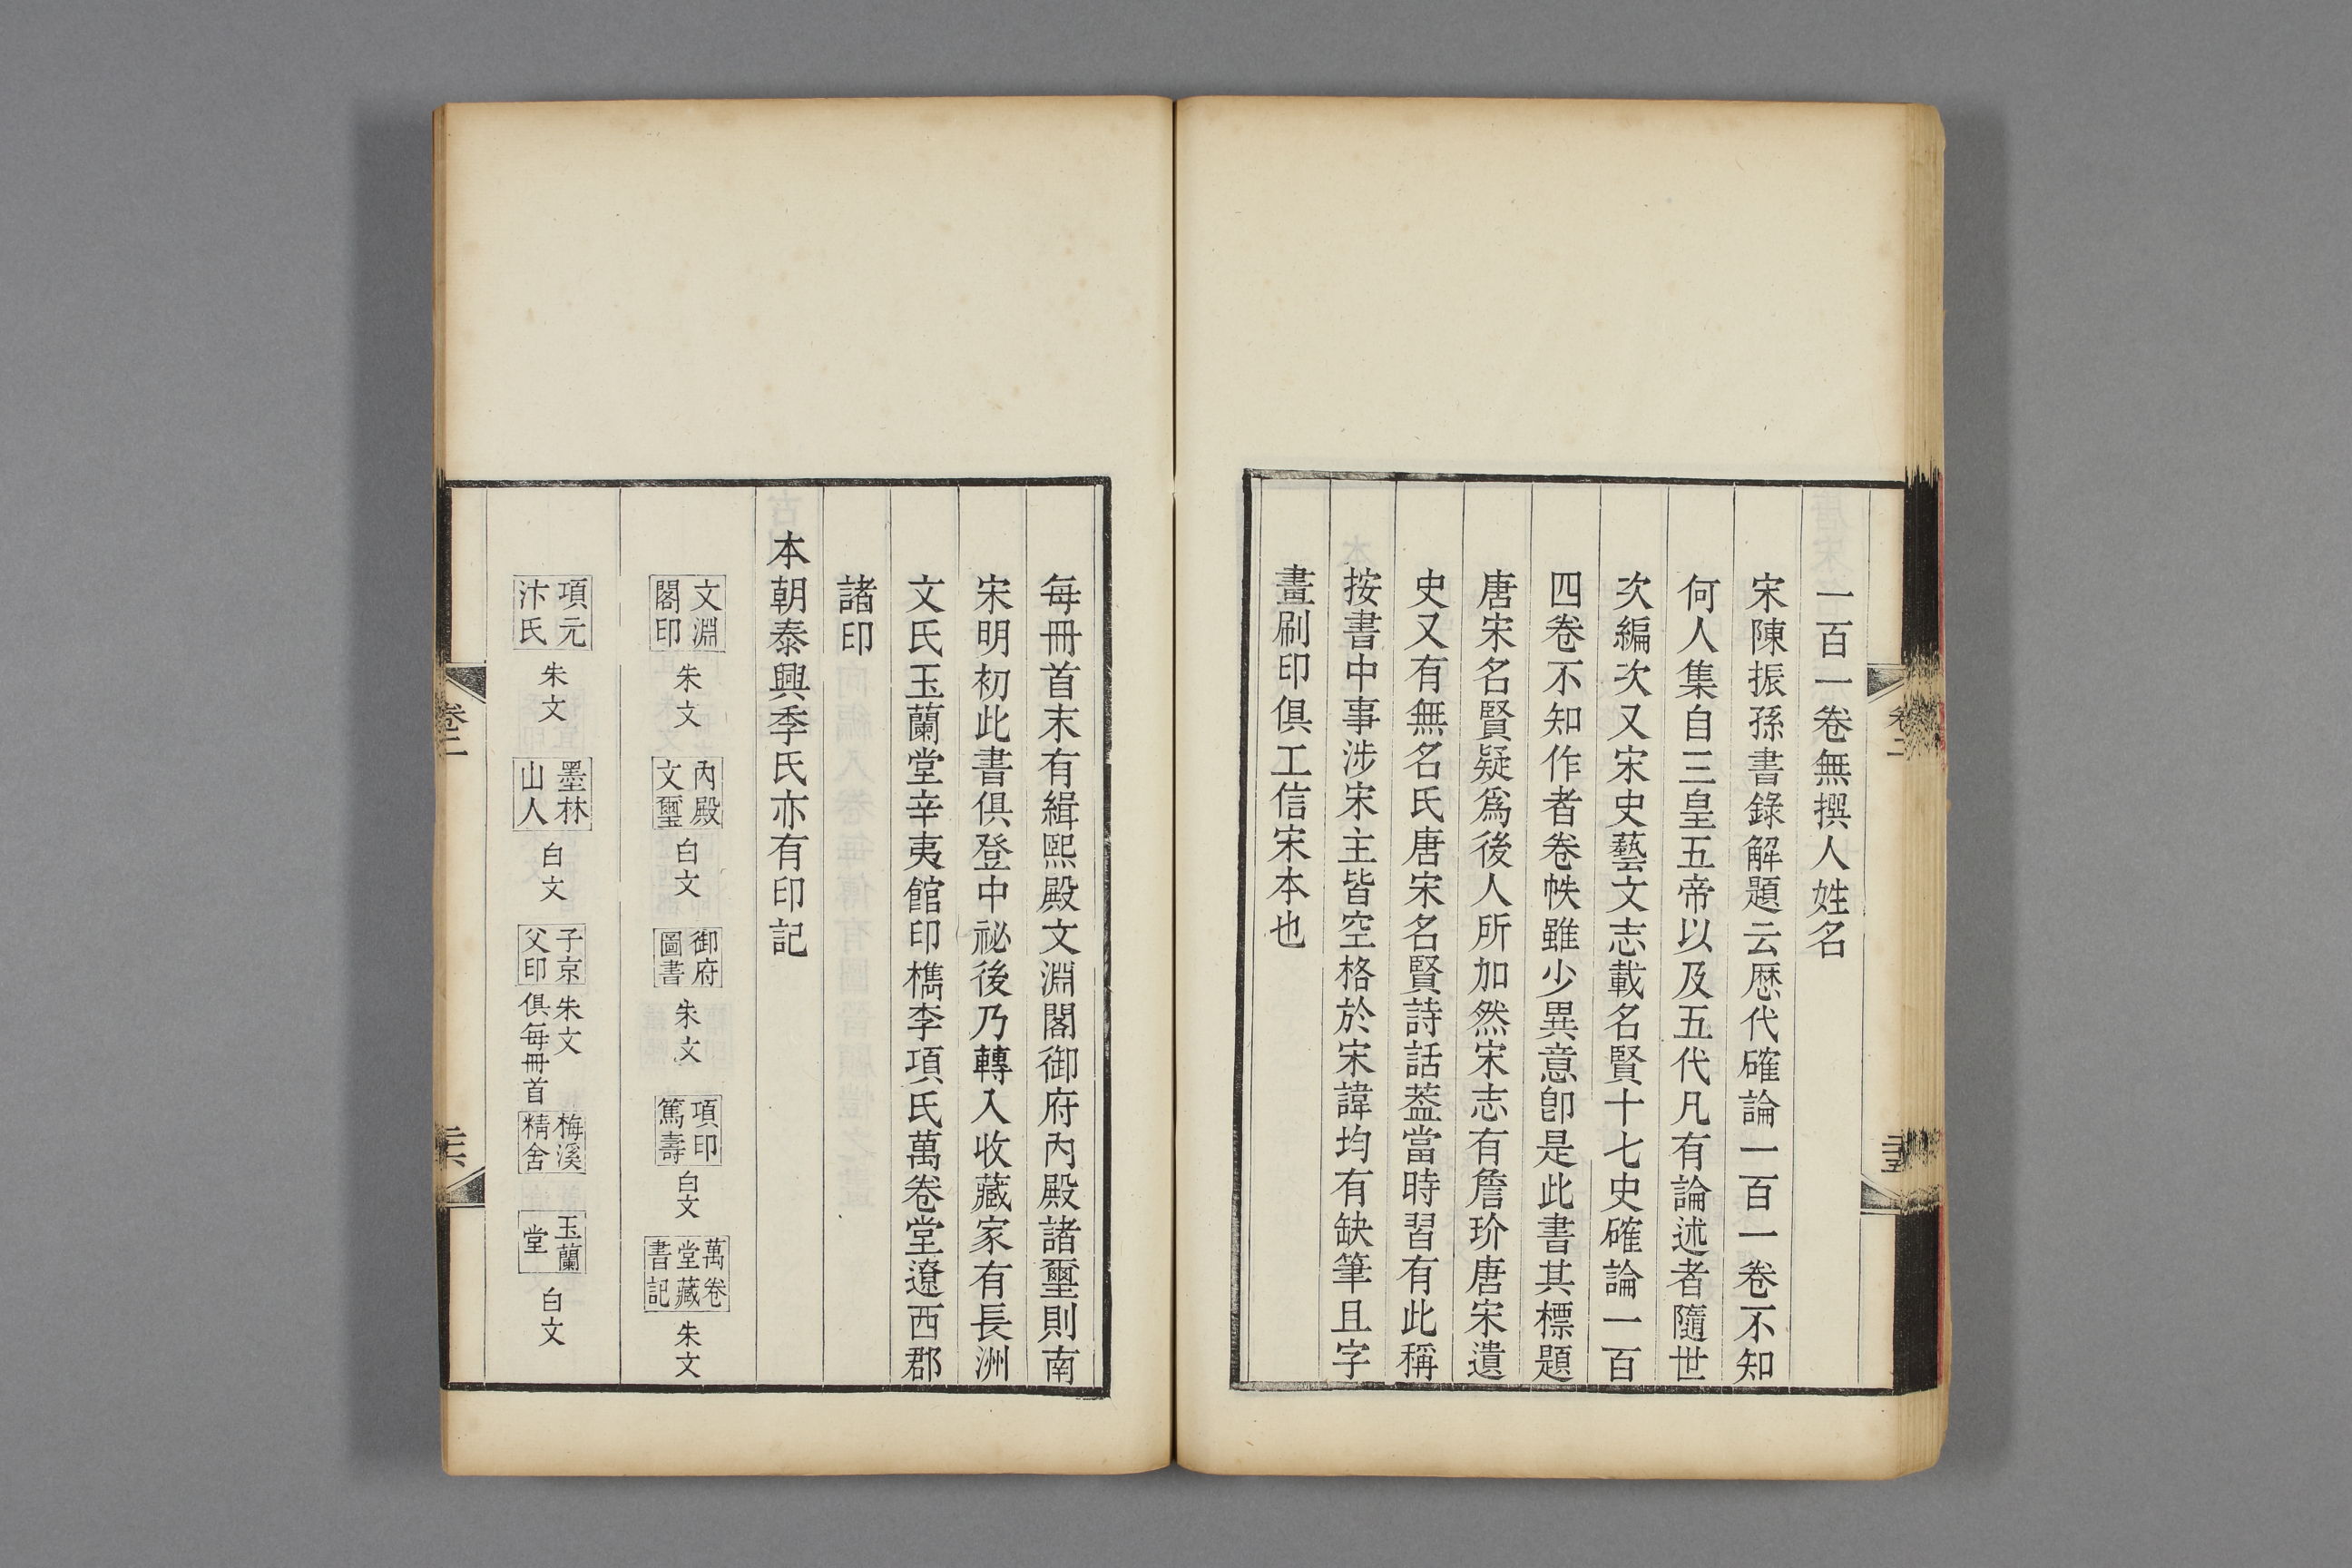 一百一卷無撰人姓名
宋陳振孫書錄解題云歷代確論一百一卷不知
何人集自三皇五帝以及五代凡有論述者隨世
次編次又宋史藝文志載名賢十七史確論一百
四卷不知作者卷帙雖少異意卽是此書其標題
唐宋名賢疑爲後人所加然宋志有詹玠唐宋遺
史又有無名氏唐宋名賢詩話葢當時習有此稱
按書中事涉宋主皆空格於宋諱均有缺筆且字
畫刷印俱工信宋本也
卷二
二十五
每冊首末有緝熙殿文淵閣御府內殿諸璽則南
宋明初此書俱登中祕後乃轉入收藏家有長洲
文氏玉蘭堂辛夷館印檇李項氏萬卷堂遼西郡
諸印
本朝泰興季氏亦有印記
文淵閣印 朱文 內殿文璽 白文 御府圖書 朱文 項印篤壽 白文 萬卷堂藏書記 朱文
項元汴氏 朱文 墨林山人 白文 子京父印 朱文俱每冊首 梅溪精舍 玉蘭堂 白文
卷二
二十六